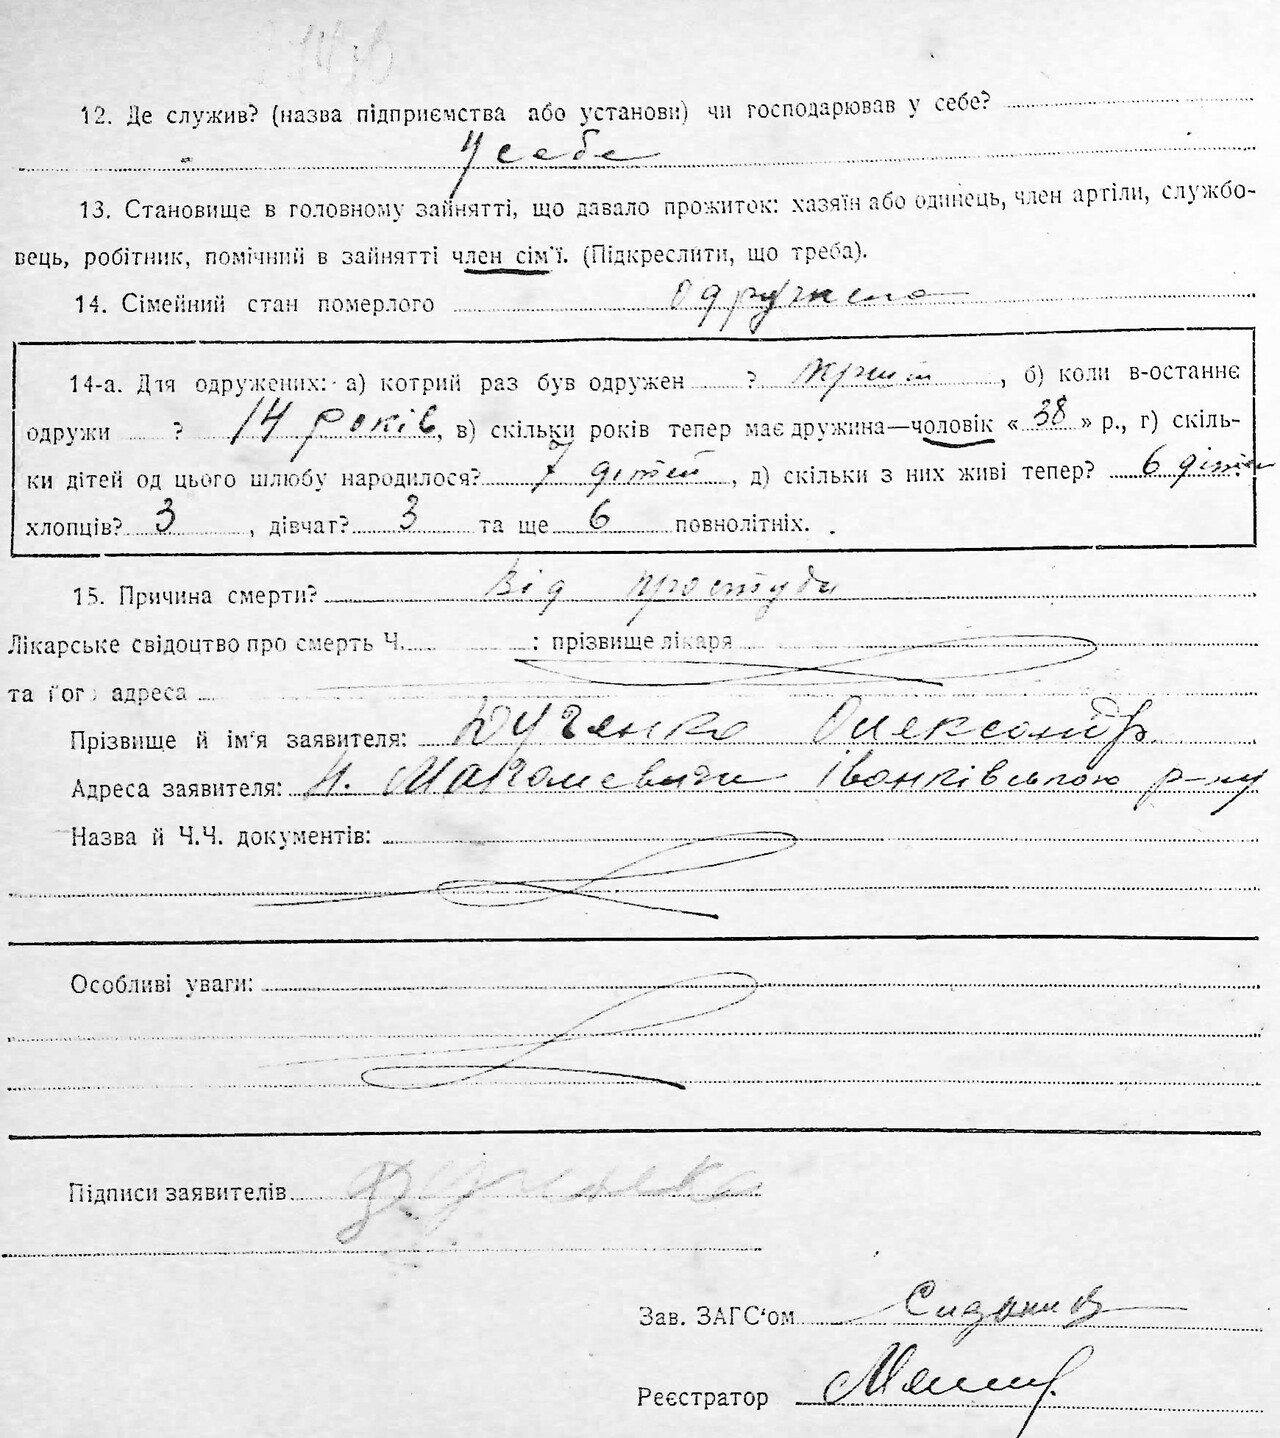 12. Де служив? (назва підприємства або установи) чи господарював у себе?
У себе
13. Становище в головному зайнятті, що давало прожиток: хазяїн або одинець, член артіли, службо-
вець, робітник, помічний в зайнятті член сім'ї. (Підкреслити, що треба).
14. Сімейний стан померлого одружена
14-а. Для одружених: а) котрий раз був одружен ? , б) коли в-останнє
одружи ? 14 років, в) скільки років тепер має дружина—чоловік « 38 » р., г) скіль-
ки дітей од цього шлюбу народилося? 7 дітей , д) скільки з них живі тепер? 6 дітей
хлопців? 3 , дівчат? 3 та ще 6 повнолітніх.
15. Причина смерти? Від простуди
Лікарське свідоцтво про смерть Ч. : прізвище лікаря
та його адреса
Прізвище й ім'я заявителя: Олександр
Адреса заявителя: Іванківського р-ну
Назва й Ч.Ч. документів:
Особливі уваги:
Підписи заявителів
Зав. ЗАГС'ом
Реєстратор